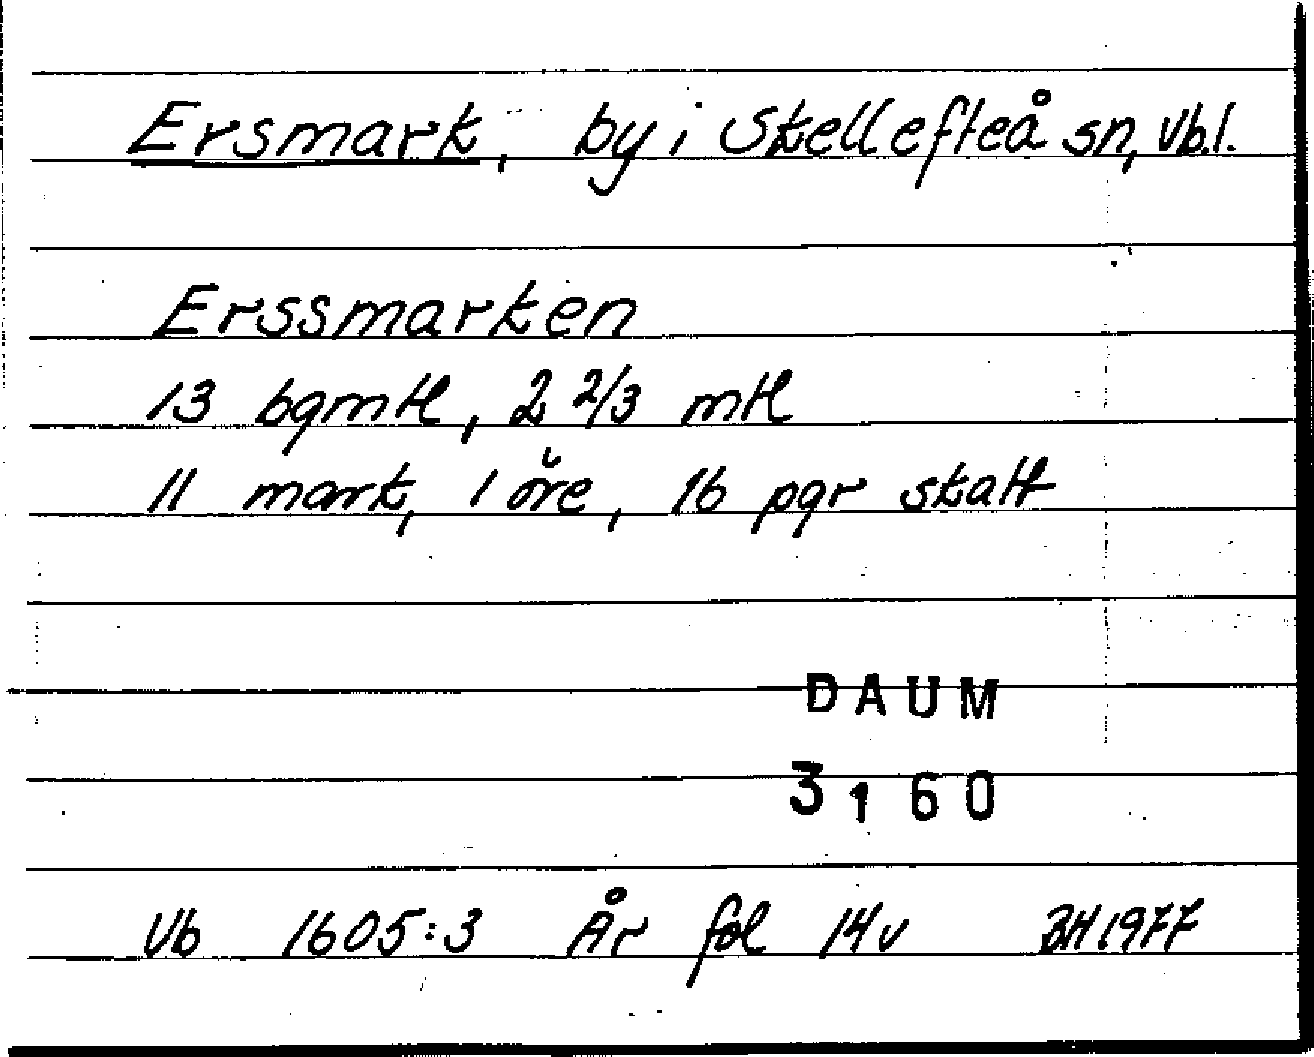 Ersmark, by i Skellefteå sn, Vb.l.
Erssmarken
13 bgmtl, 2 2/3 mtl
11 mark, 1 öre, 16 pgr skatt
DAUM
3160
Vb 1605:3 År fol 14v BH1977